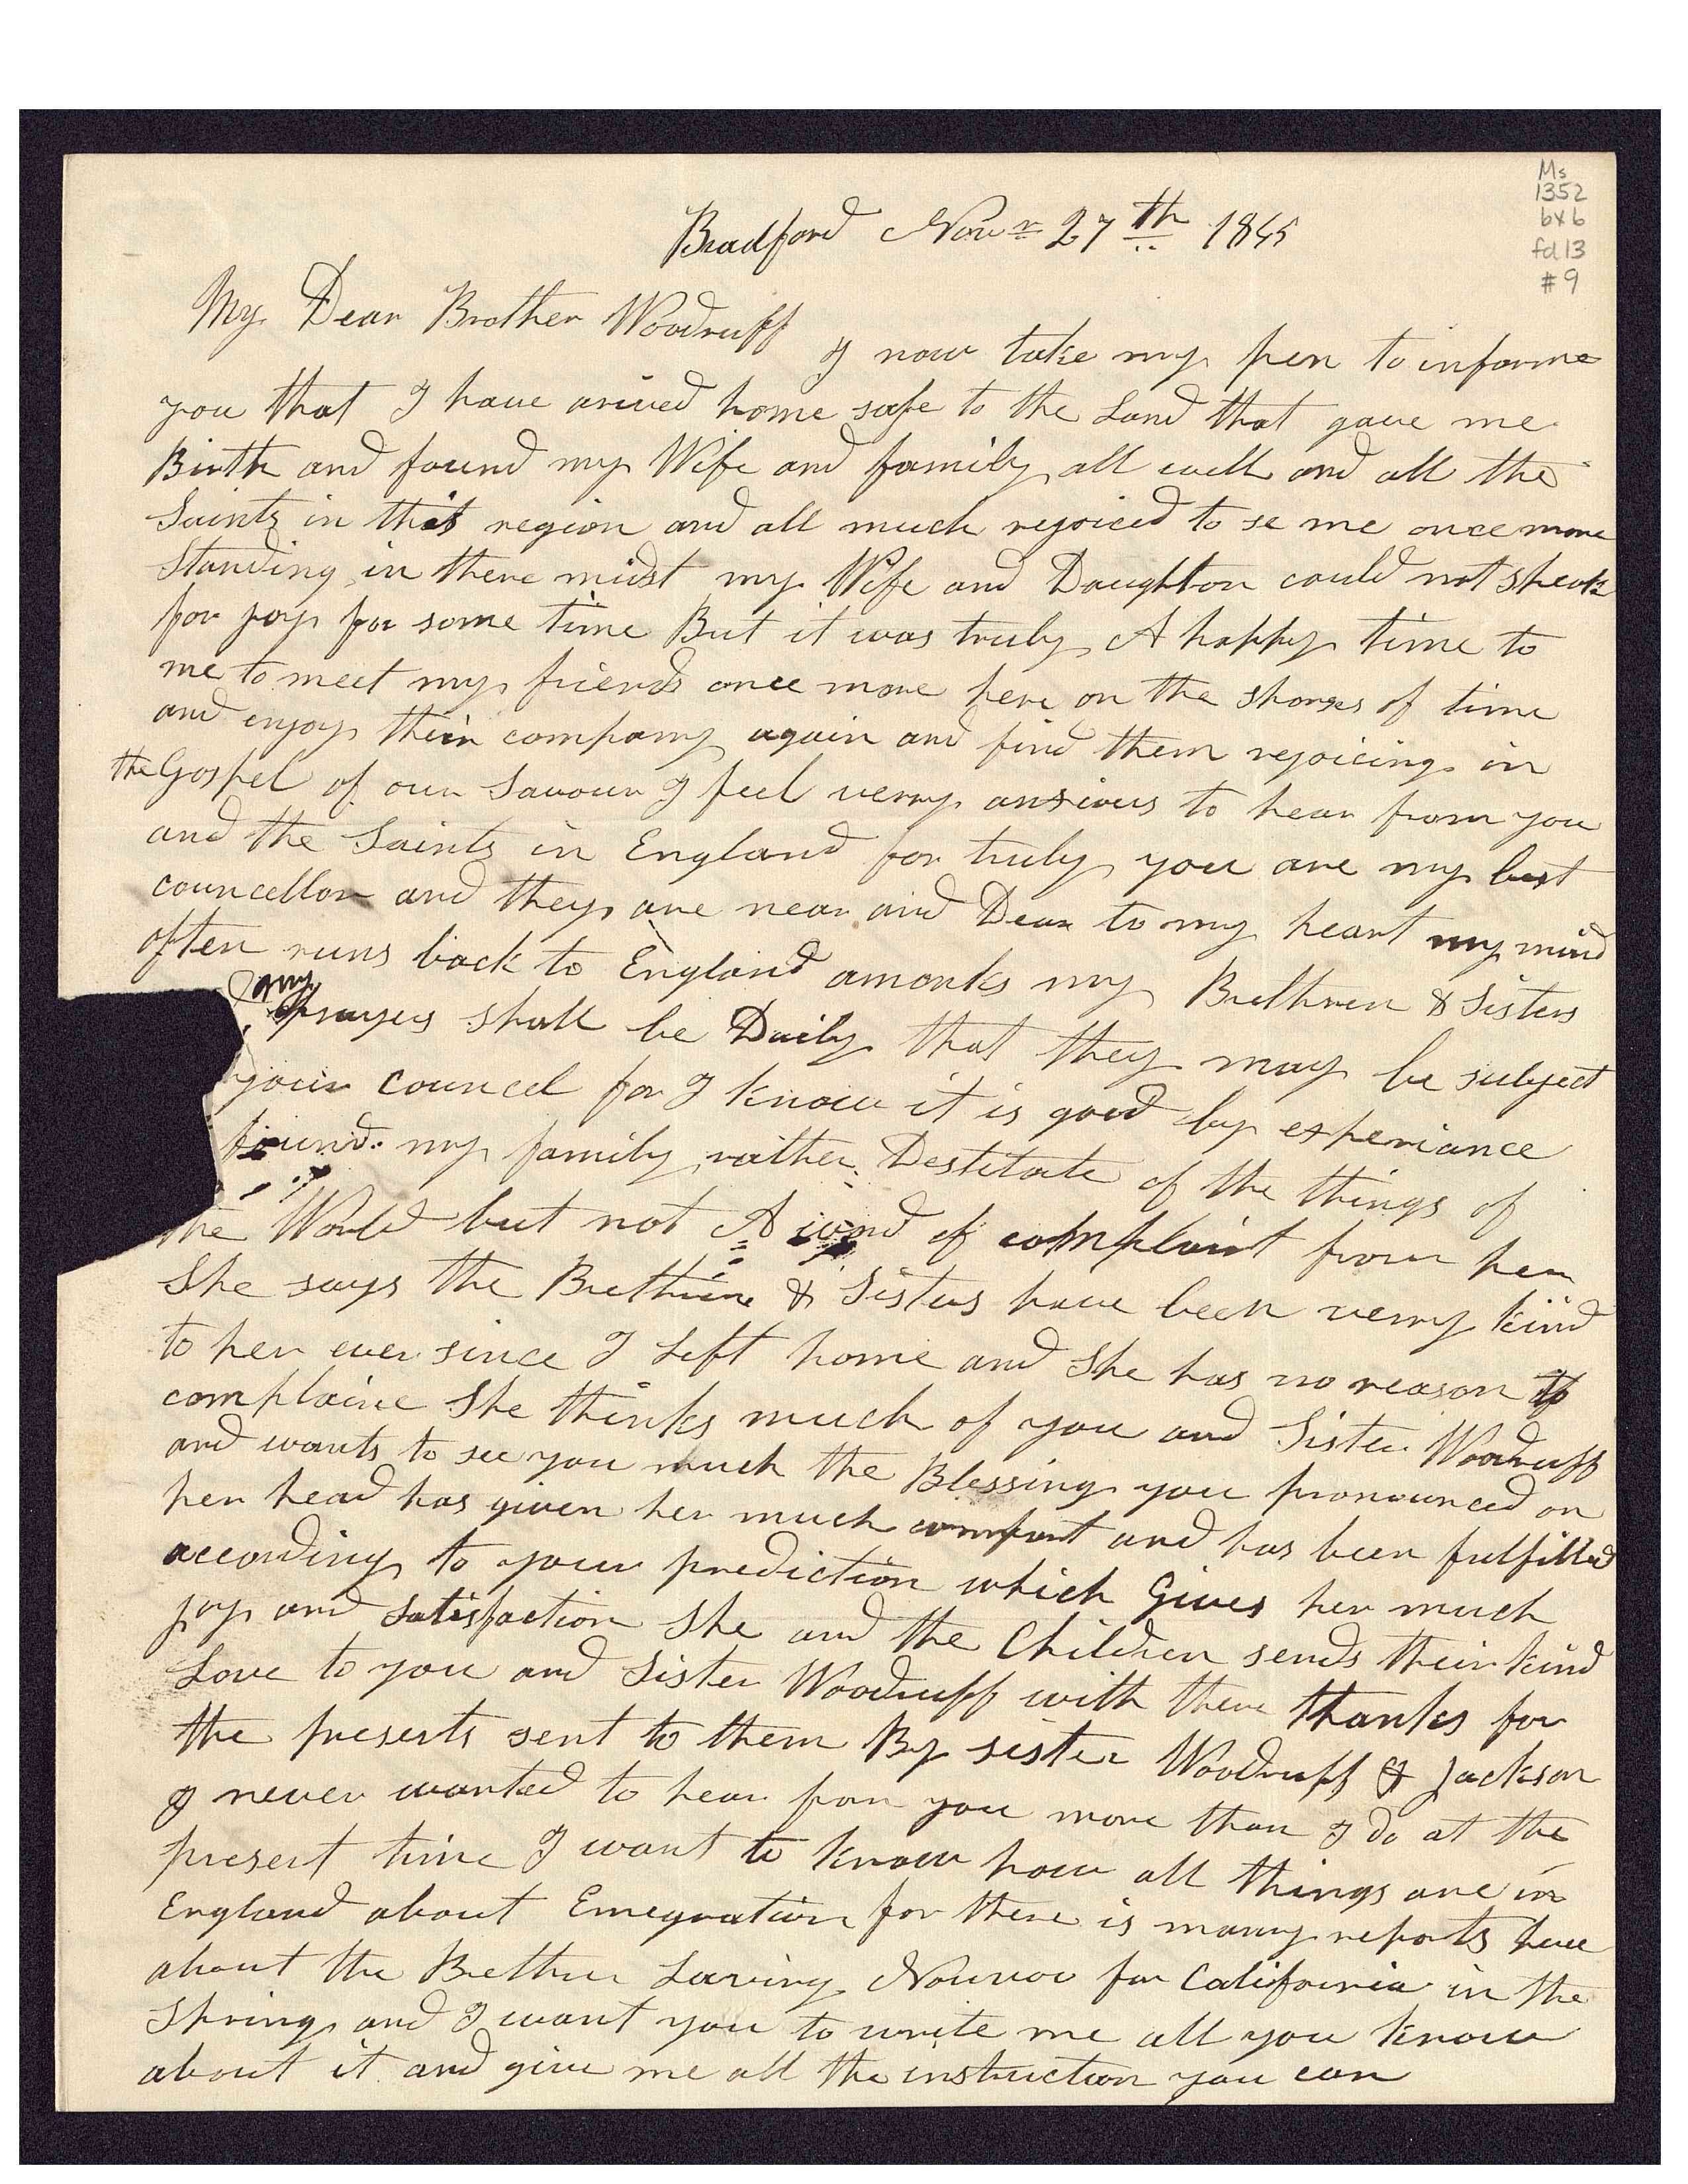 Ms
1352
bx 6
fd 13
#9
Bradford Novr 27th 1845
My Dear Brother Woodruff
I now take my pen to informe
you that I have arived home safe to the Land that gave me
Birth and found my Wife and family all well and all the
Saints in this region and all much rejoiced to se me once more
Standing in there midst my Wife and Daughter could not speak
for joy for some time But it was truly A happy time to
me to meet my friends once more here on the shores of time
and enjoy their company again and find them rejoicing in
the Gospel of our Savour I feel verry anxious to hear from you
and the Saints in England for truly you are my best
councellor and they are near and Dear to my heart my mind
often runs back to England amonks my Brethren & Sisters
my prayers shall be Daily that they may be subject
your councel for I know it is good by experiance
found my family rather Destitute of the things of
the World but not A word of complaint from her
She says the Brethren & Sisters have been verry kind
to her ever since I Left home and She has no reason to
complaine She thinks much of you and Sister Woodruff
and wants to see you much the Blessing you pronounced on
her head has given her much comfort and has been fulfilled
according to your prediction which Gives her much
joy and Satisfaction She and the Children sends their kind
Love to you and Sister Woodruff with there thanks for
the presents sent to them By sister Woodruff & Jackson
I never wanted to hear from you more than I do at the
present time I want to know how all things are in
England about Emegration for there is many reports here
about the Brethren Leaving Nauvoo for California in the
Spring and I want you to write me all you know
about it and give me all the instruction you can